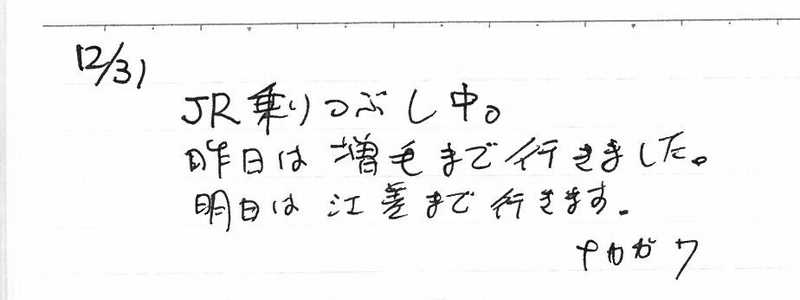 12/31
JR乗りつぶし中。
昨日は増毛まで行きました。
明日は江差まで行きます。
ナカガワ